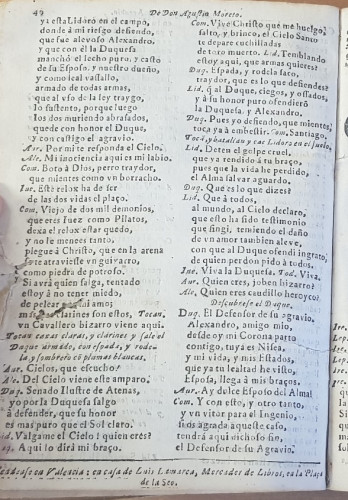 40
De Don Agustin Moreto.
y está Lidoro en el campo,
donde à mi riesgo defiendo,
que fue alevoso Alexandro,
y que con él la Duquesa
manchó el lecho puro, y casto
de su Esposo, y nuestro dueño,
y como leal vassallo,
armado de todas armas,
que al vso de la ley traygo,
lo sustento, porque luego
los dos muriendo abrasados,
quede con honor el Duque,
y con castigo el agravio.
Aur. Por mi te responda el Cielo.
Ale. Mi inociencia aqui es mi labio.
Com. Boto à Dios, perro traydor,
que mientes como vn borracho.
Iur. Este relox ha de ser
de las dos vidas el plaço.
Com. Viejo de dos mil demonios,
que eres Iuez como Pilatos,
dexa el relox estar quedo,
y no le menees tanto,
plegue à Christo, que en la arena
se te atraviesse vn guixarro,
como piedra de potroso.
Si avrà quien salga, tentado
estoy à no tener miedo,
de pelear por mi amo;
mas clarines son estos, Tocan.
vn Cavallero bizarro viene aqui.
Tocan caxas claras, y clarines y sale el
Duque armado, con espada, y rodela
y sombrero cõ plumas blancas,
Aur. Cielos, que escucho!
Ale. Del Cielo viene este amparo.
Duq. Senado Ilustre de Atenas,
yo por la Duquesa salgo
à defender, que su honor
es mas puro que el Sol claro.
Lid. Valgame el Cielo! quien eres?
Duq. Aqui lo dirà mi braço.
Com. Vive Christo què me huelgo,
salto, y brinco, el Cielo Santo
te depare cuchilladas
de toro muerto. Lid. Temblando
estoy aqui, que armas quieres?
Duq. Espada, y rodela saco,
traydor, que es lo que defiendes?
Lid. q̃ al Duque, ciegos, y ossados,
y à su honor puro ofendierõ
la Duquesa, y Alexandro.
Duq. Pues yo defiendo, que mientes,
toca yà à embestir. Com. Santiago,
Tocã, y batallan y cae Lidoro en el suelo.
Lid. Deten el golpe cruel,
que ya rendido à tu braço,
pues que la vida he perdido,
el Alma salvar aguardo.
Duq. Que es lo que dizes?
Lid. Que à todos,
al mundo, al Cielo declaro,
que esto ha sido testimonio
que fingi, temiendo el daño
de vn amor tambien aleve,
con que al Duque ofendi ingrato,
de quien perdon pido à todos.
Iue. Viva la Duquesa. Tod. Viva.
Aur. Quien eres, joben bizarro?
Ale. Quien eres caudillo heroyco?
Descubrese el Duque.
Duq. El Defensor de su agravio.
Alexandro, amigo mio,
desde oy mi Corona parto
contigo, tuya es Nisea,
y mi vida, y mis Estados,
que ya tu lealtad he visto,
Espada, llega à mis braços.
Aur. Ay dulce Esposo del Alma!
Com. Y con esto, y otro tanto,
y vn vitor para el Ingenio,
si os agrada aqueste caso,
tendrà aqui dichoso fin,
el Defensor de su Agravio.
Vendese en Valencia: en casa de Luis Lamarca, Mercader de Libros, en la Plaça
de la Seo.